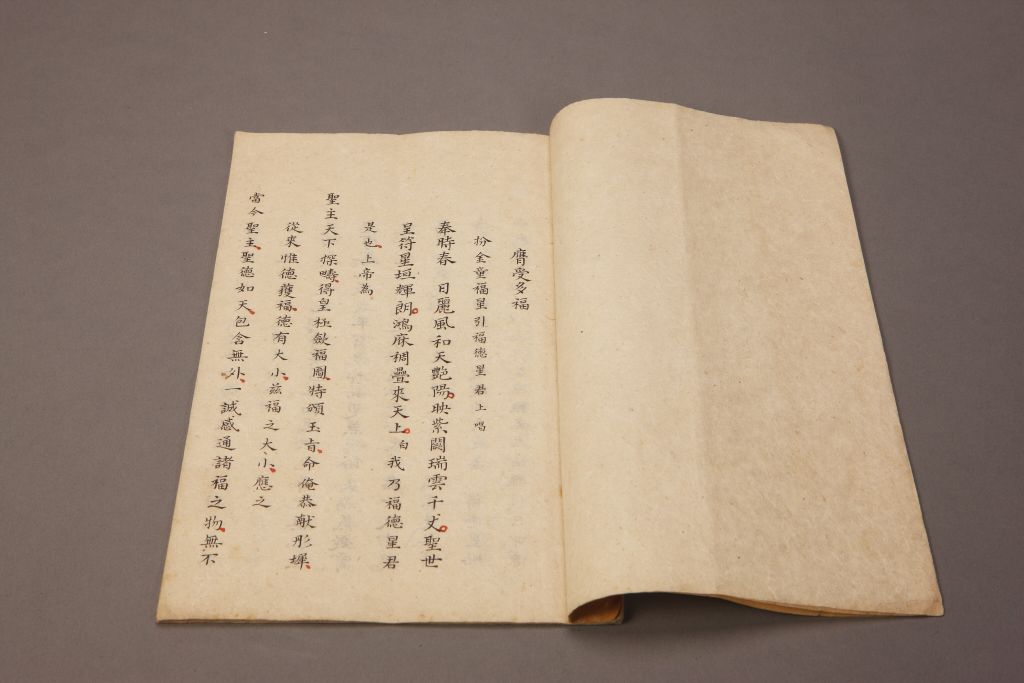 膺受多福
扮金童福星引福德星君上唱
奉時春 日麗風和天艷陽映紫闕瑞雲千丈聖世
呈符星垣輝朗鴻庥稠疊來天上白我乃福德星君
是也上帝為
聖主天下探疇得皇極斂福圍特頒玉旨命俺恭献彤墀
從來惟德獲福德有大小茲福之大小應之
當今聖主聖德如天包含無外一誠感通諸福之物無不